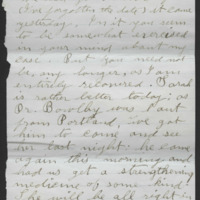 I've forgotten the date) it came
yesterday. Isn't you seem
to be somewhat exercised
in your mind about my
case. But you need not
be, any longer, as I am
entirely recovered. Sarah
is rather better today; as
Dr. Dorothy was
from Portland, I've got
him to come and see
her last night: he came
again this morning and
had us get a strengthening
medicine of some kind.
She will be all right in